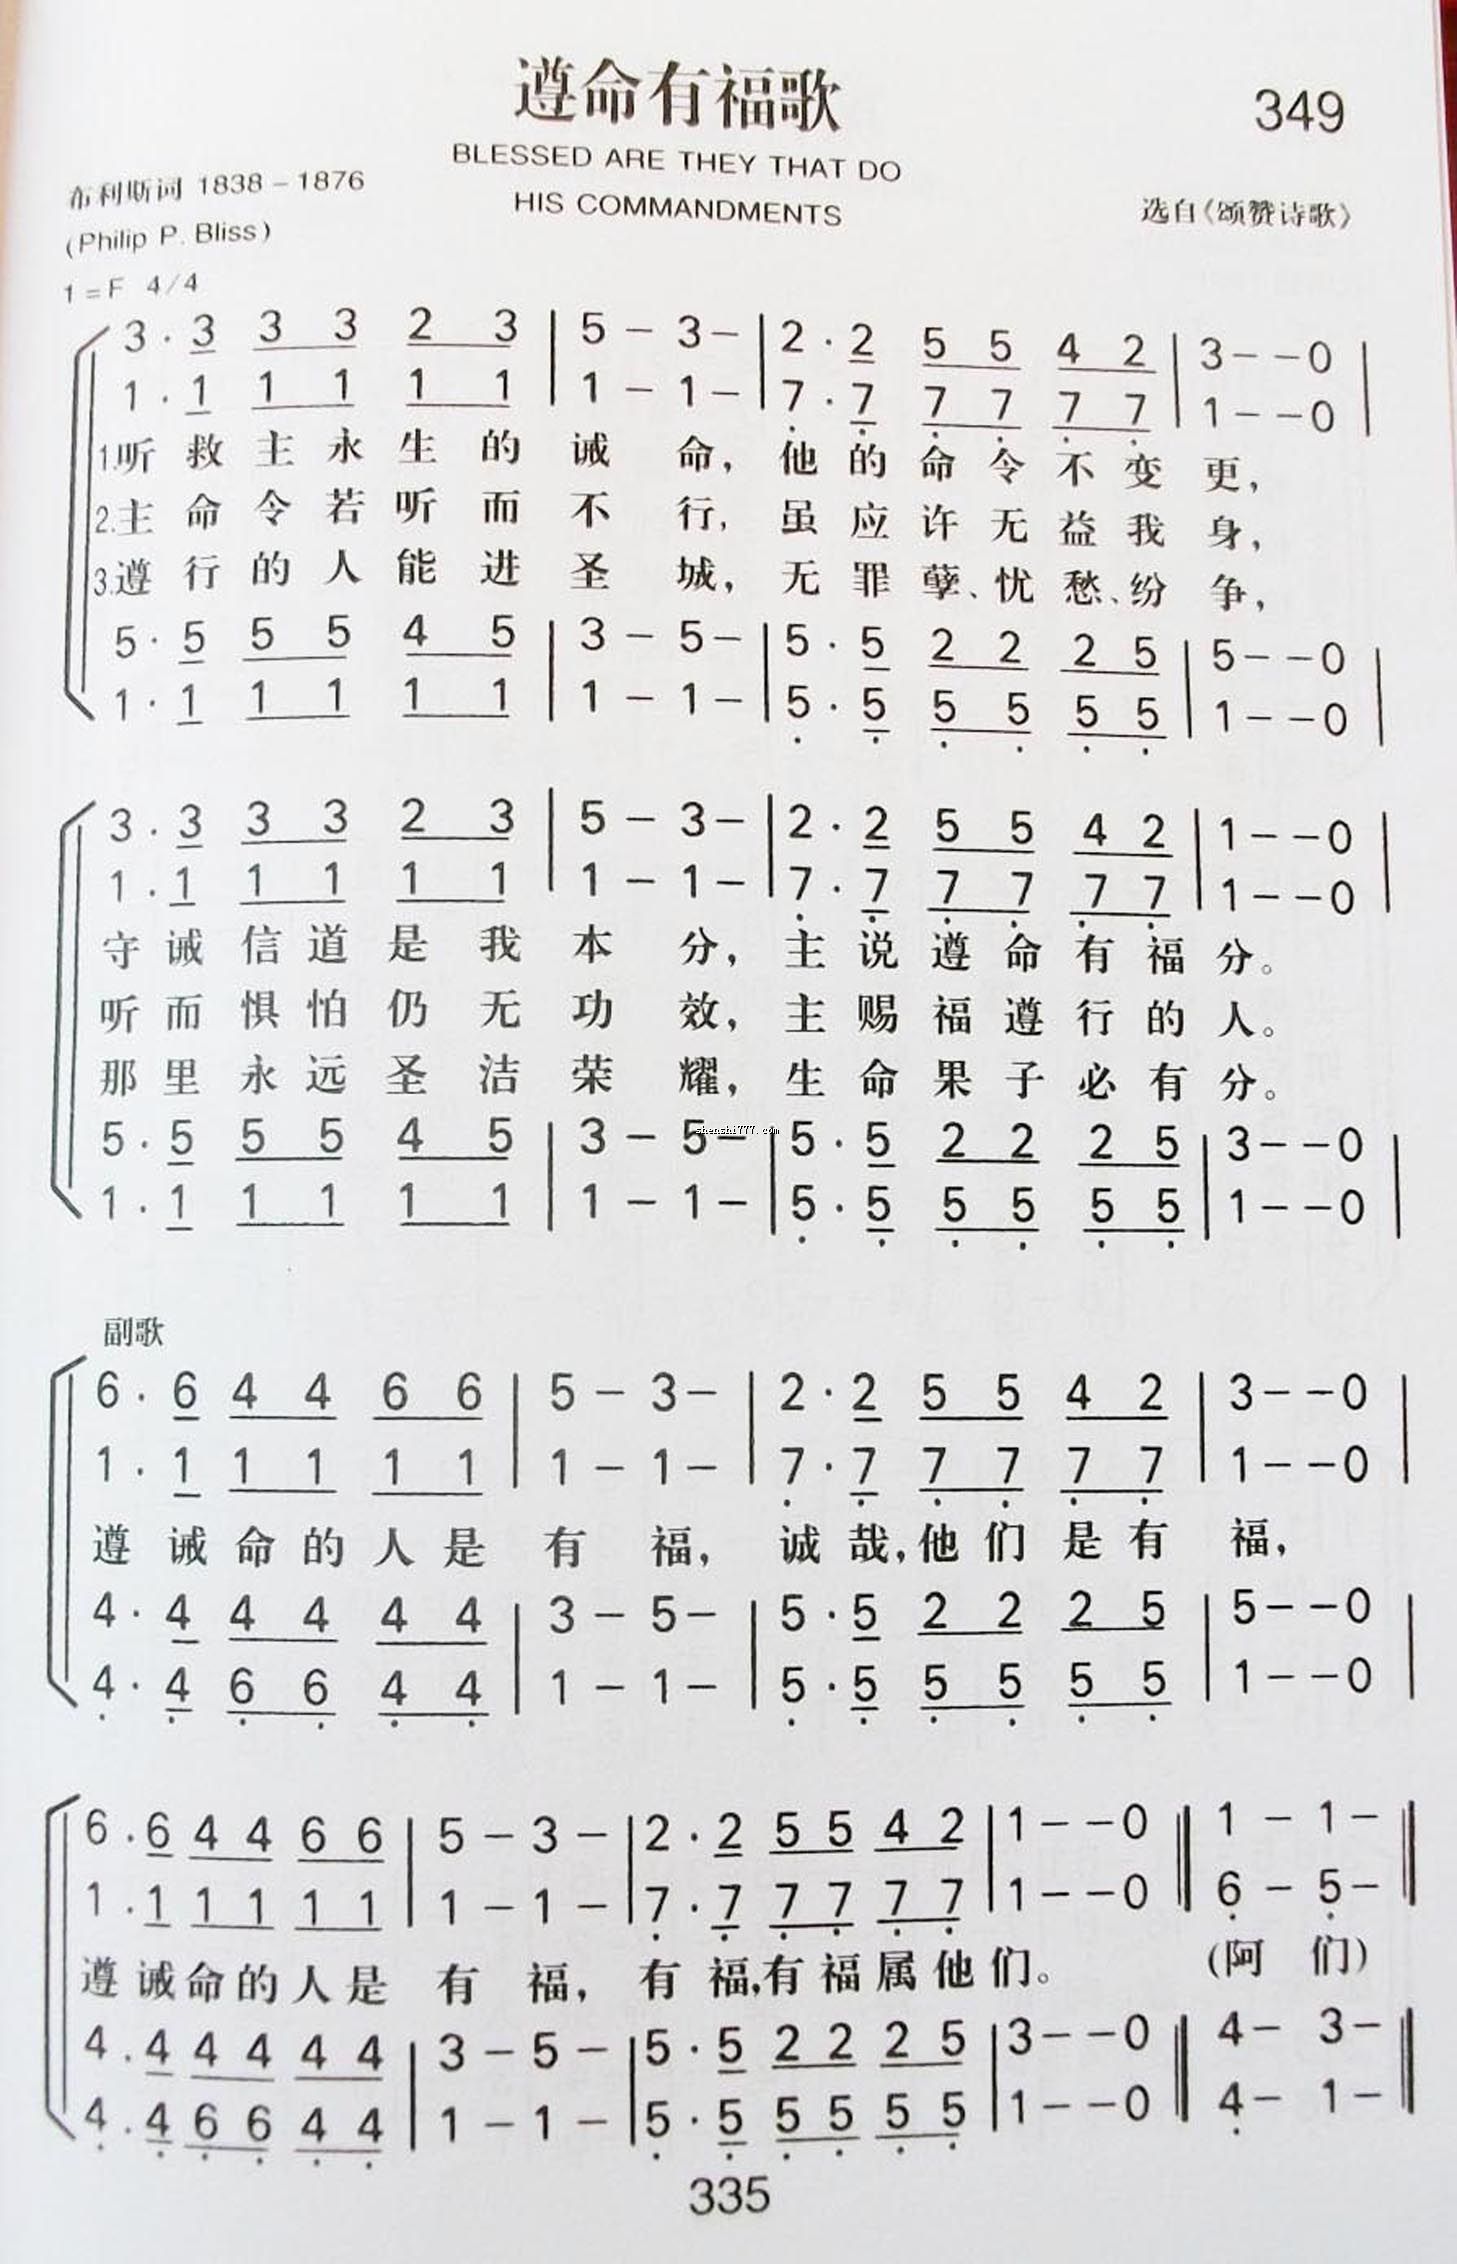 遵命有福歌
349
BLESSED ARE THEY THAT DO
HIS COMMANDMENTS
布利斯词 1838－1876
(Philip P. Bliss)
选自《颂赞诗歌》
1=F 4/4
3 · 3 3 3 2 3 | 5 － 3－ | 2 · 2 5 5 4 2 | 3－－0 |
1 · 1 1 1 1 1 | 1 － 1－ | 7 · 7 7 7 7 7 | 1－－0 |
1.听救主永生的诫命，他的命令不变更，
2.主命令若听而不行，虽应许无益我身，
3.遵行的人能进圣城，无罪孽、忧愁、纷争，
5 · 5 5 5 4 5 | 3 － 5－ | 5 · 5 2 2 2 5 | 5－－0 |
1 · 1 1 1 1 1 | 1 － 1－ | 5 · 5 5 5 5 5 | 1－－0 |
3 · 3 3 3 2 3 | 5 － 3－ | 2 · 2 5 5 4 2 | 1－－0 |
1 · 1 1 1 1 1 | 1 － 1－ | 7 · 7 7 7 7 7 | 1－－0 |
守诫信道是我本分，主说遵命有福分。
听而惧怕仍无功效，主赐福遵行的人。
那里永远圣洁荣耀，生命果子必有分。
5 · 5 5 5 4 5 | 3 － 5－ | 5 · 5 2 2 2 5 | 3－－0 |
shenshi777.com
1 · 1 1 1 1 1 | 1 － 1－ | 5 · 5 5 5 5 5 | 1－－0 |
副歌
6 · 6 4 4 6 6 | 5 － 3－ | 2 · 2 5 5 4 2 | 3－－0 |
1 · 1 1 1 1 1 | 1 － 1－ | 7 · 7 7 7 7 7 | 1－－0 |
遵诫命的人是有福，诚哉，他们是有福，
4 · 4 4 4 4 4 | 3 － 5－ | 5 · 5 2 2 2 5 | 5－－0 |
4 · 4 6 6 4 4 | 1 － 1－ | 5 · 5 5 5 5 5 | 1－－0 |
6 · 6 4 4 6 6 | 5 － 3 － | 2 · 2 5 5 4 2 | 1－－0 ‖ 1 － 1－ ‖
1 · 1 1 1 1 1 | 1 － 1 － | 7 · 7 7 7 7 7 | 1－－0 ‖ 6 － 5－ ‖
遵诫命的人是有福，有福，有福属他们。（阿们）
4 · 4 4 4 4 4 | 3 － 5 － | 5 · 5 2 2 2 5 | 3－－0 ‖ 4－ 3－ ‖
4 · 4 6 6 4 4 | 1 － 1 － | 5 · 5 5 5 5 5 | 1－－0 ‖ 4－ 1－ ‖
335